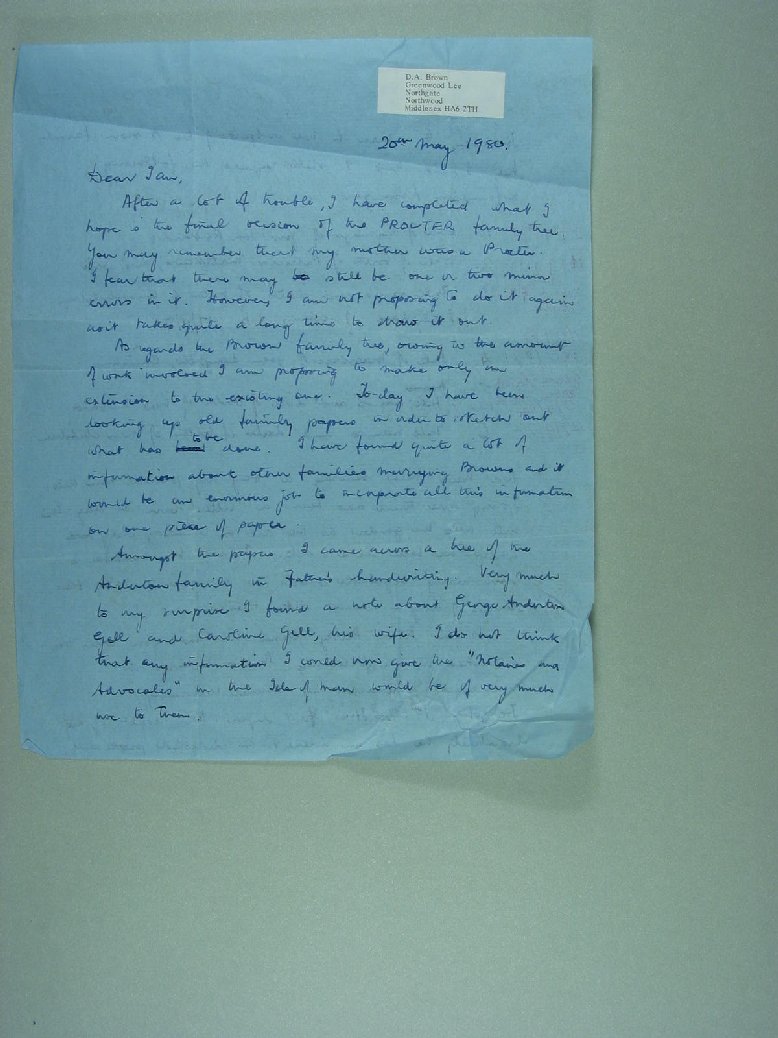 D.A. Brown
Greenwood Lee
Northgate
Northwood
Middlesex HA6 2TH
20th May 1980.
Dear Ian,
After a lot of trouble, I have completed what I
hope is the final version of the PROCTER family tree.
You may remember that my mother was a Procter.
I fear that there may be still be one or two minor
errors in it. However, I am not proposing to do it again
as it takes quite a long time to draw it out.
As regards the Brown family tree, owing to the amount
of work involved I am proposing to make only an
extension to the existing one. To-day I have been
looking up old family papers in order to sketch out
what has to be done. I have found quite a lot of
information about other families marrying Browns and it
would be an enormous job to incorporate all this information
on one piece of paper.
Amongst the papers I came across a tree of the
Anderton family in Father's handwriting. Very much
to my surprise I found a note about George Anderton
Gell and Caroline Gell, his wife. I do not think
that any information I could now give the "Notaries and
Advocates" in the Isle of Man would be of very much
use to them.